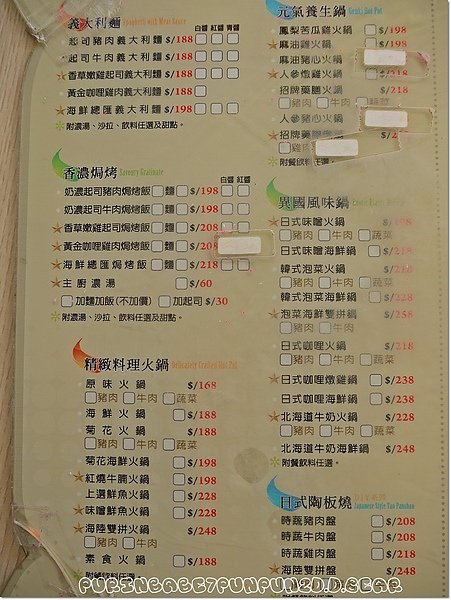 義大利麵 Spaghetti with Meat Sauce
白醬 紅醬 青醬
起司豬肉義大利麵 $/188
起司牛肉義大利麵 $/188
★香草嫩雞起司義大利麵 $/188
黃金咖哩雞肉義大利麵 $/188
★海鮮總匯義大利麵 $/198
＊附濃湯、沙拉、飲料任選及甜點。
香濃焗烤 Savoury Gratinate
白醬 紅醬
奶濃起司豬肉焗烤飯 麵 $/198
奶濃起司牛肉焗烤飯 麵 $/198
★香草嫩雞起司焗烤飯 麵 $/208
★黃金咖哩雞肉焗烤飯 麵 $/208
★海鮮總匯焗烤飯 麵 $/218
★主廚濃湯 $/60
加麵加飯(不加價) 加起司 $/30
＊附濃湯、沙拉、飲料任選及甜點。
精緻料理火鍋 Delicately Crafted Hot Pot
原味火鍋 $/168
豬肉 牛肉 蔬菜
海鮮火鍋 $/188
菊花火鍋 $/188
豬肉 牛肉 蔬菜
菊花海鮮火鍋 $/198
★紅燒牛腩火鍋 $/198
上選鮮魚火鍋 $/228
★味噌鮮魚火鍋 $/228
★海陸雙拼火鍋 $/248
豬肉 牛肉
素食火鍋 $/188
＊附餐飲料任選。
元氣養生鍋 Genki Hot Pot
鳳梨苦瓜雞火鍋 $/198
★麻油雞火鍋 $/198
麻油豬心火鍋
★人參燉雞火鍋 $/218
招牌藥膳火鍋 $/218
豬肉 牛肉 蔬菜
人參豬心火鍋
★招牌藥膳
＊附餐飲
異國風味鍋
★日式味噌火鍋 $/198
豬肉 牛肉 蔬菜
日式味噌海鮮鍋 $/218
韓式泡菜火鍋
豬肉 牛肉 蔬菜
韓式泡菜海鮮鍋 $/228
★泡菜海鮮雙拼鍋 $/258
豬肉 牛肉
日式咖哩火鍋 $/218
豬肉 牛肉 蔬菜
★日式咖哩燉雞鍋 $/238
日式咖哩海鮮鍋 $/238
★北海道牛奶火鍋 $/228
豬肉 牛肉 蔬菜
北海道牛奶海鮮鍋 $/248
＊附餐飲料任選。
日式陶板燒 Japanese Style Tao Panshao
時蔬豬肉盤 $/208
時蔬牛肉盤 $/208
時蔬雞肉盤 $/218
★海陸雙拼盤 $/248